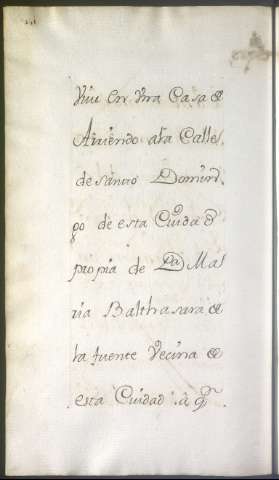 Viue en Vna Casa de
Aiuiendo a la Calle
de sancto Domin
go de esta Ciudad
propia de Da Ma
ria Balthasara de
la fuente Vecina de
esta Ciudad . a q.